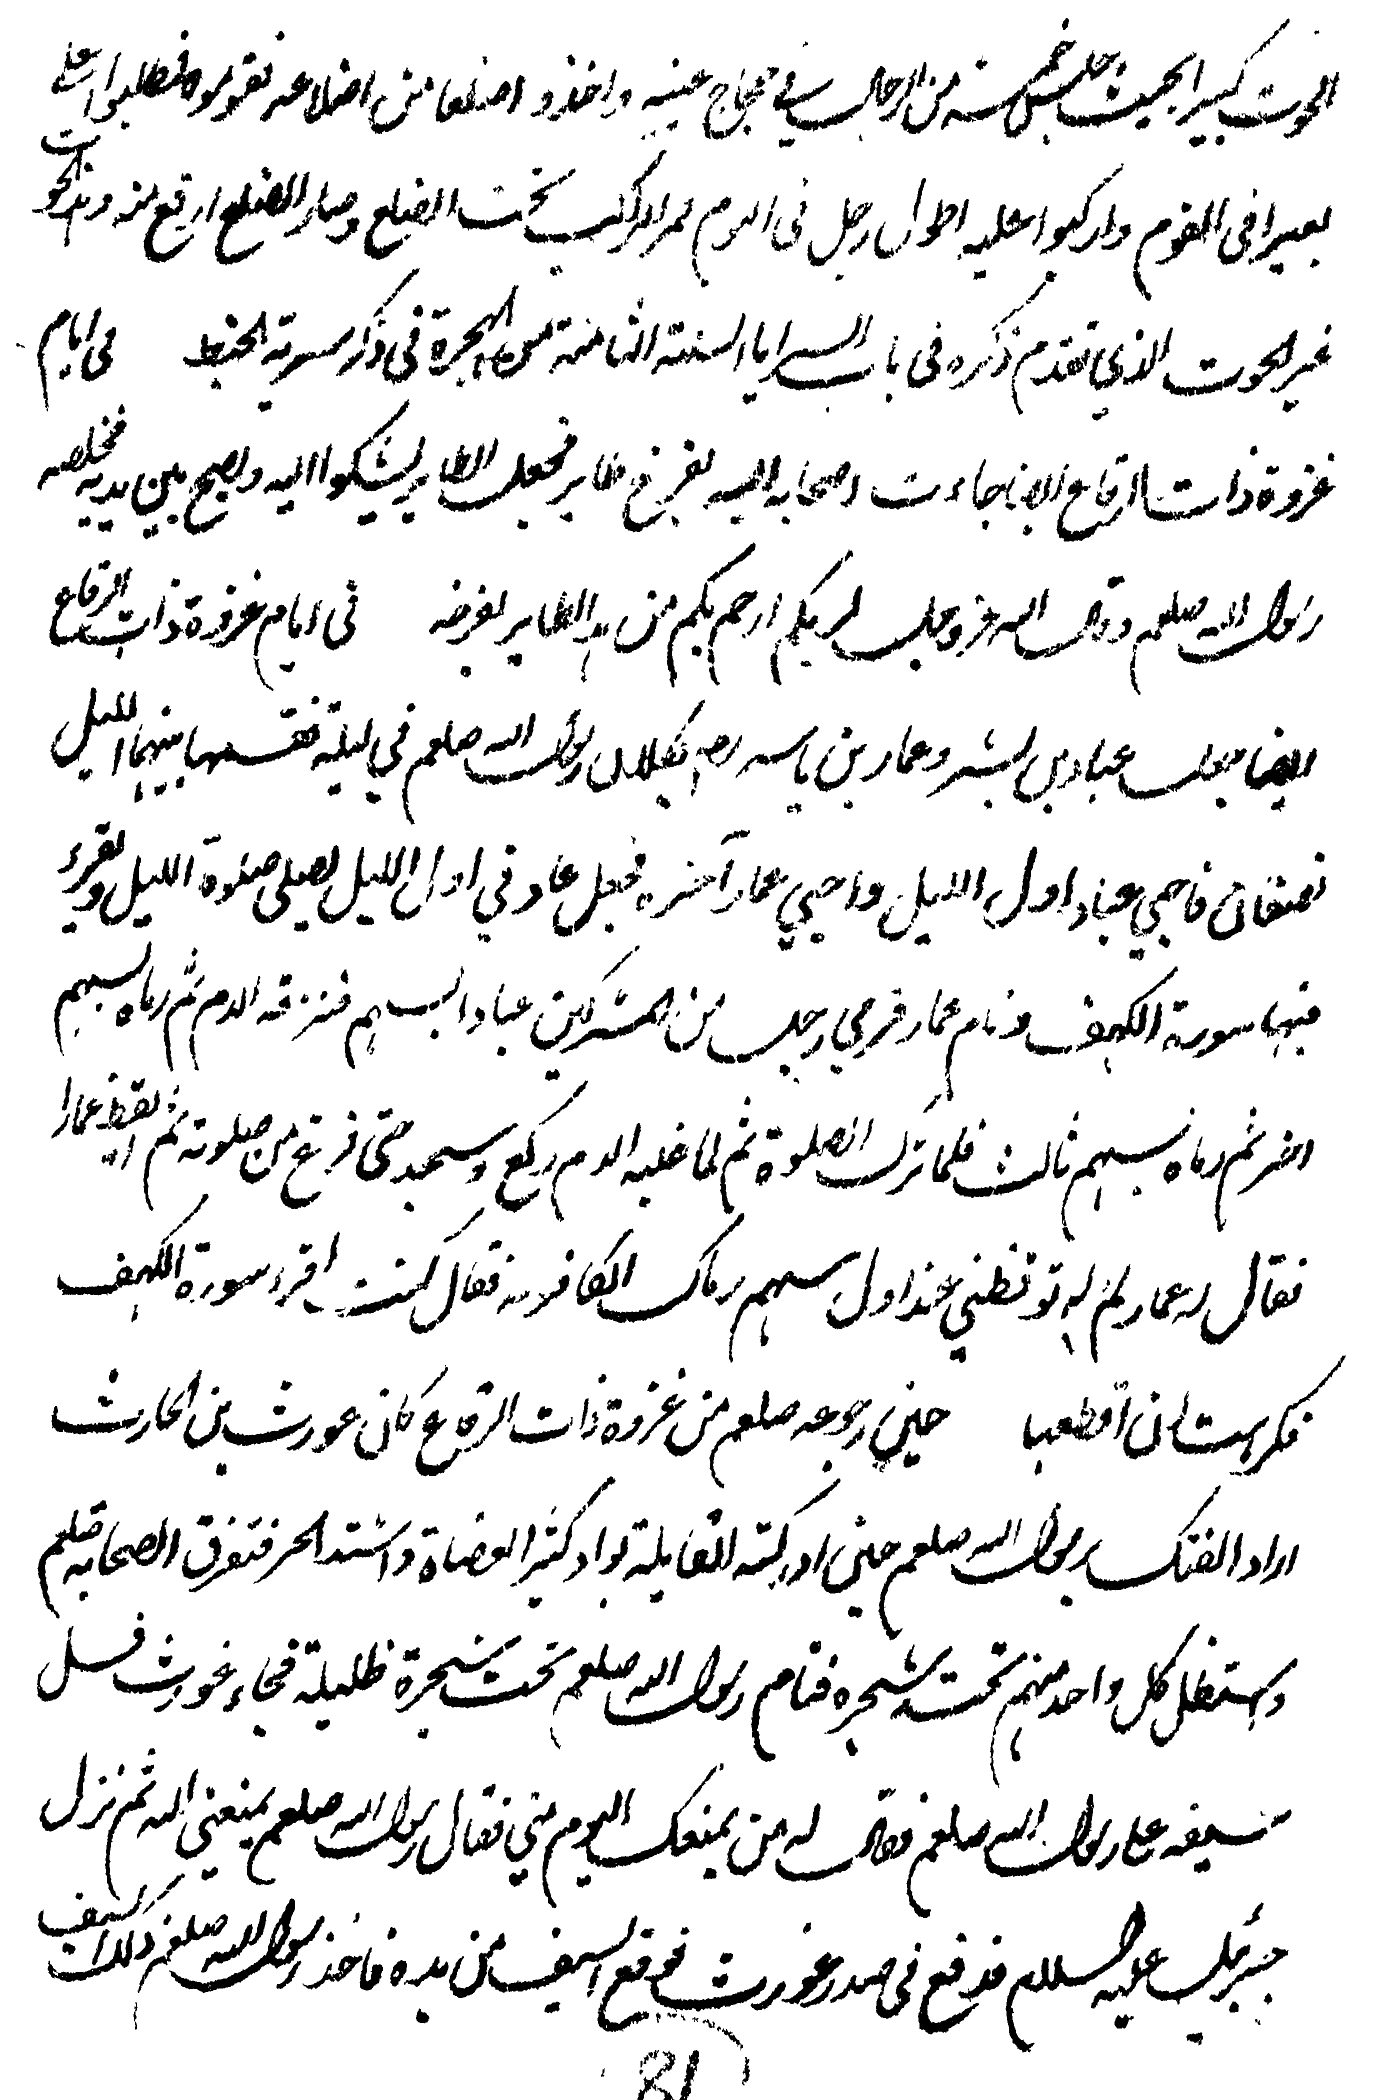 الحوت كبيرا بحيث جلس خمسة من الرجال في حجاج عينيه واخذوا ضلعا من اضلاعه فقوموه فطلبوا اعلى
بعيرا في القوم واركبوا عليه اطول رجل في القوم فمر الراكب تحت الضلع وصار الضلع ارفع منه وهذا الحوت
غير الحوت الذي تقدم ذكره في باب السرايا السنة الثامنة من الهجرة في ذكر سرية الخبط في ايام
غزوة ذات الرقاع ايضا جاءت اصحابه اليه بفرخ طاير فجعل الطاير يشكوا اليه ويصيح بين يديه فخلصه
رسول الله صلعم وقال الله عز وجل لربكم ارحم بكم من هذا الطاير بفرخه في ايام غزوة ذات الرقاع
ايضا جعل عباد بن بشر وعمار بن ياسر رض يكلان رسول الله صلعم في ليلة فقسمها بينهما الليل
نصفان فاحيي عباد اول الليل واحيي عمار آخره فجعل عباد في اول الليل يصلي صلوة الليل ويقرء
فيها سورة الكهف ونام عمار فرمي رجل من المشركين عبادا بسهم فنزفه الدم ثم رماه بسهم
اخر ثم رماه بسهم ثالث فلما ترك الصلوة ثم لما غلبه الدم ركع وسجد حتى فرغ من صلوته ثم ايقظ عمارا
فقال له عمار لم لم توقظني عند اول سهم رماك الكافر به فقال كنت اقرء سورة الكهف
فكرهت ان اقطعها حين رجوعه صلعم من غزوة ذات الرقاع كان عورث بن الحارث
اراد الفتك برسول الله صلعم حين ادركته القايلة بواد كثير العضاة واشتد الحر فتفرق الصحابه صلعم
واستظل كل واحد منهم تحت شجره فنام رسول الله صلعم تحت شجرة ظليلة فجاء غورث فسل
سيفه على رسول الله صلعم فقال له من يمنعك اليوم مني فقال رسول الله صلعم يمنعني الله ثم نزل
جبرئيل عليه السلام فدفع في صدر غورث فوقع السيف من يده فاخذ رسول الله صلعم ذلك السيف
81